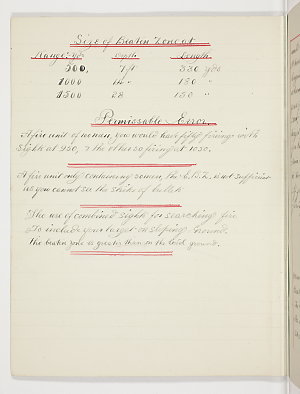 Size of Beaten Zone at
Range Yds Depth Length
500 7ft 330 yds
1000 14 " 150 "
1500 28 150 "
Permissable Error
A fire unit of men, you would have fifty firing with
sights at 950, & the other 50 firing at 1050.
A fire unit only containing 50 men, the is not sufficient
as you cannot see the strike of bullets
The use of combined sight for searching fire
& to include your target on sloping ground.
The beaten zone is greater than on the level ground.